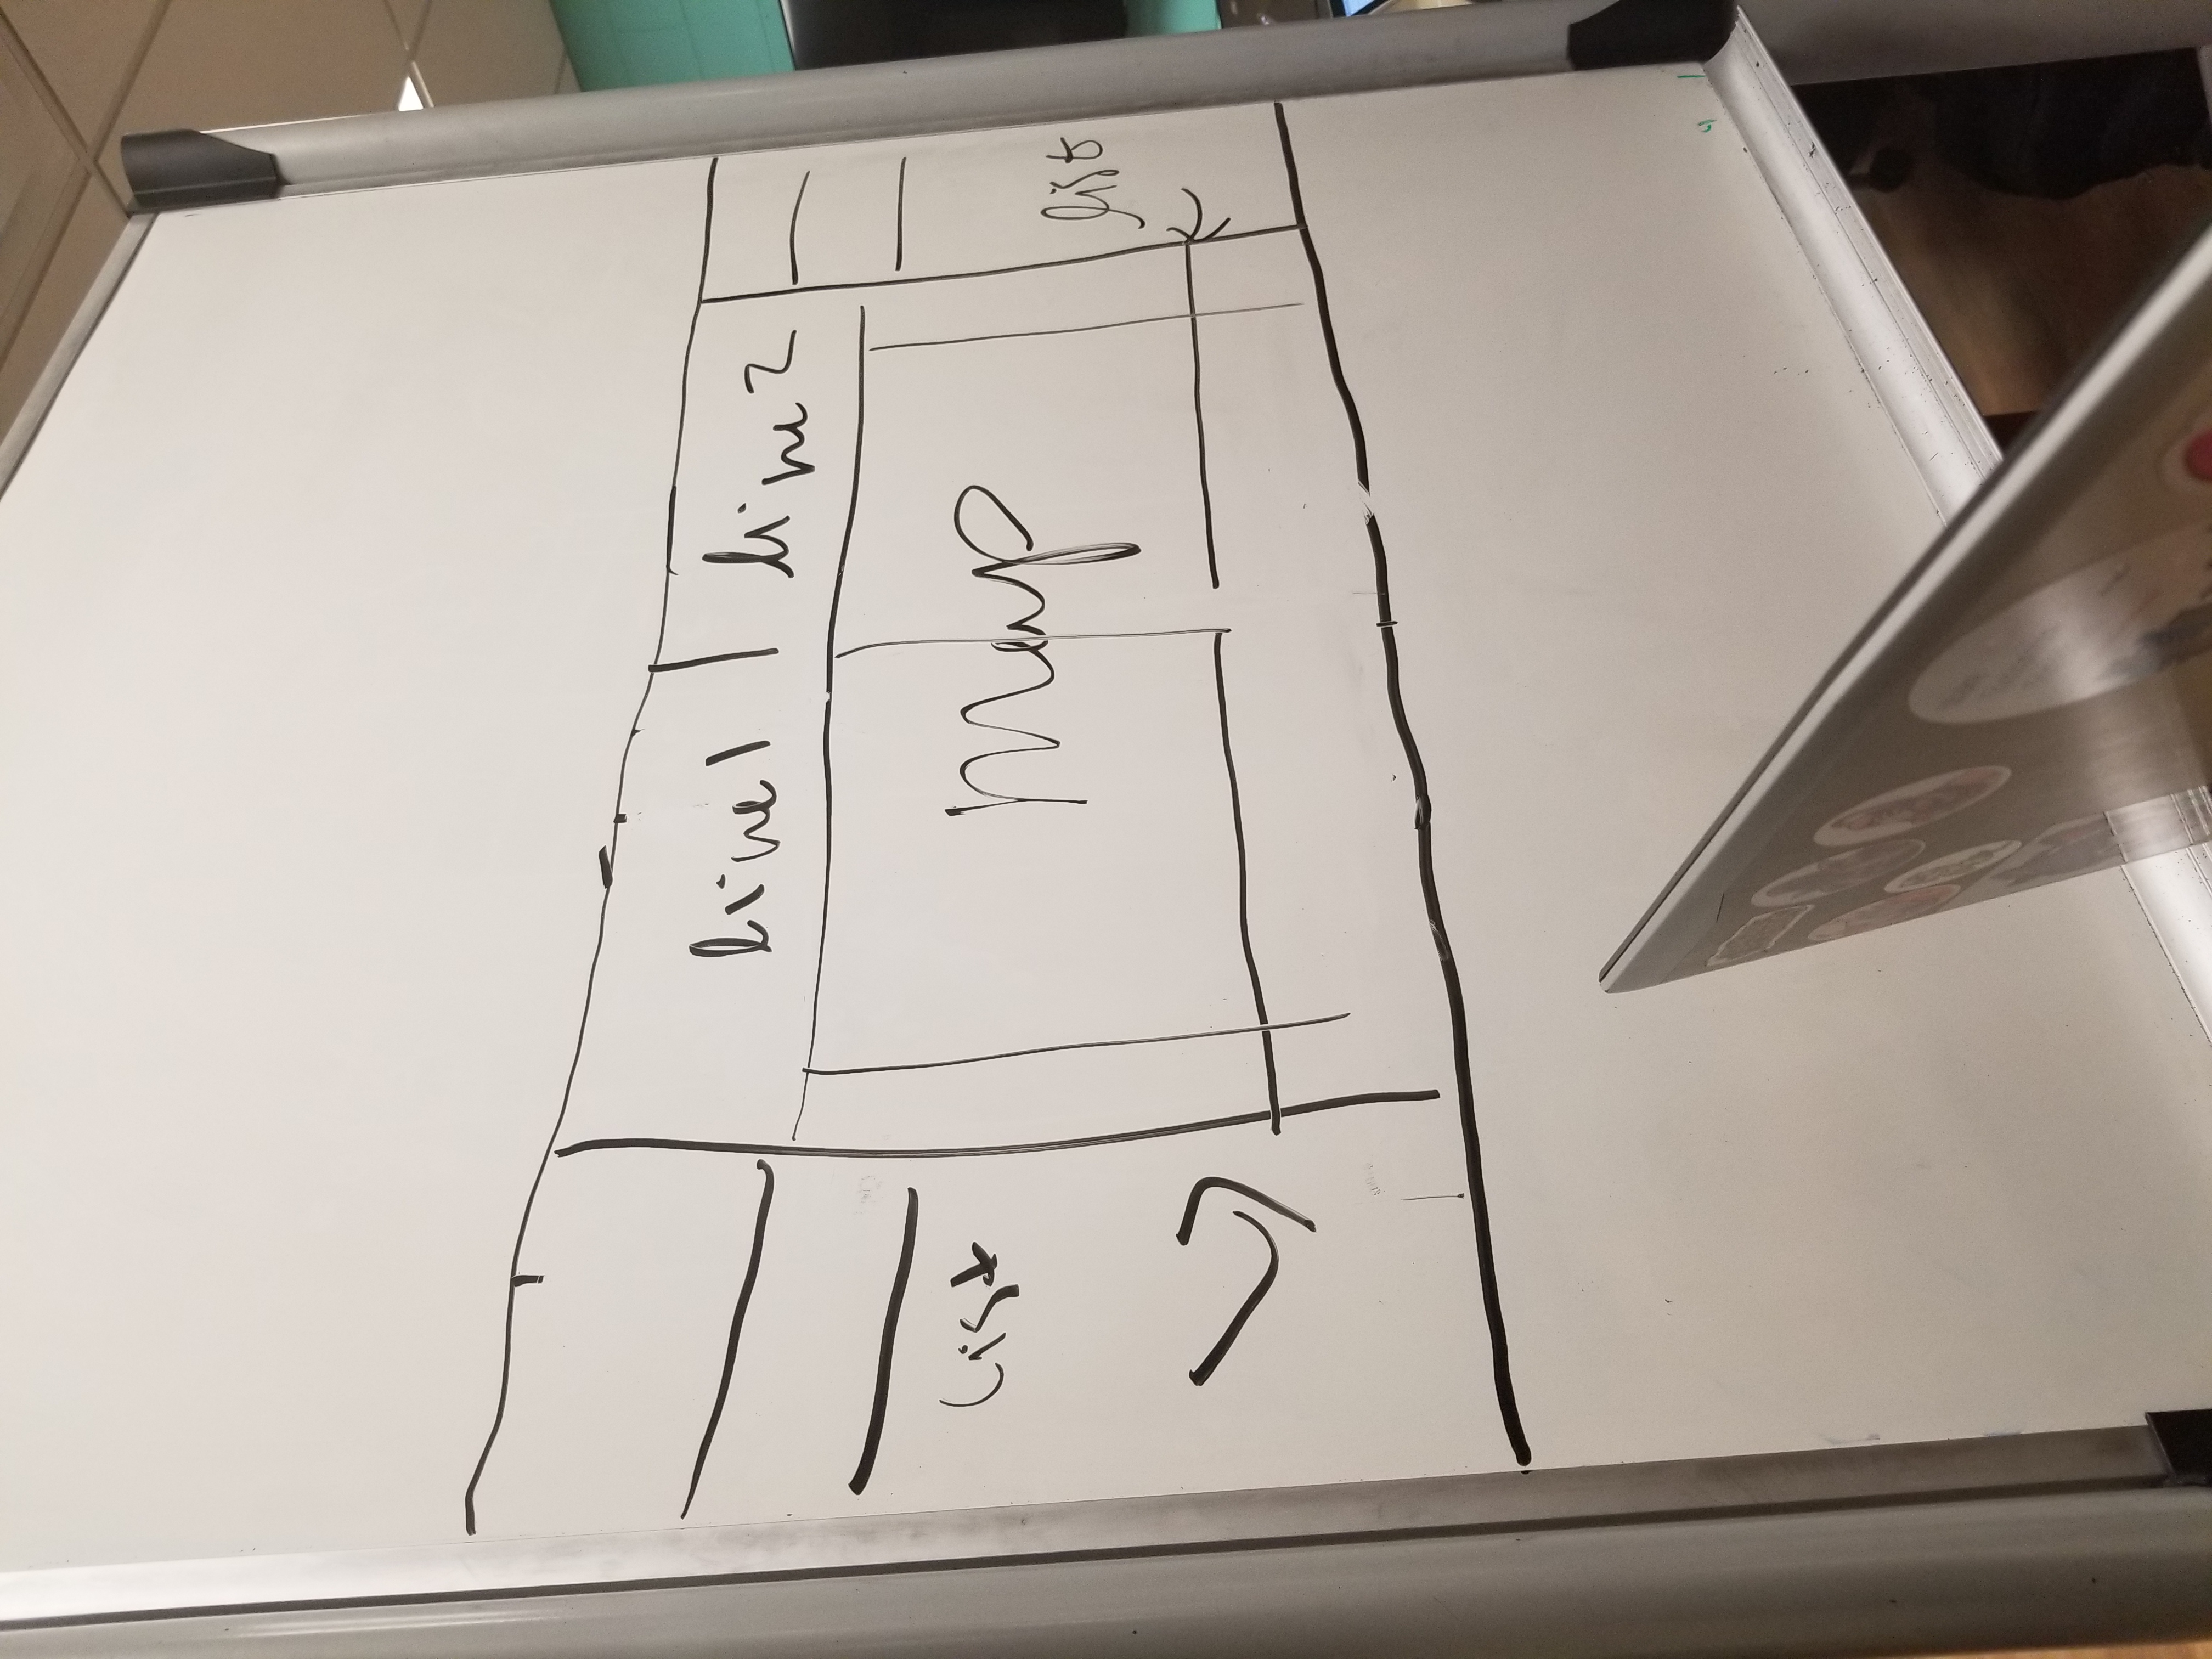 line 1
line 2
list
Map
list